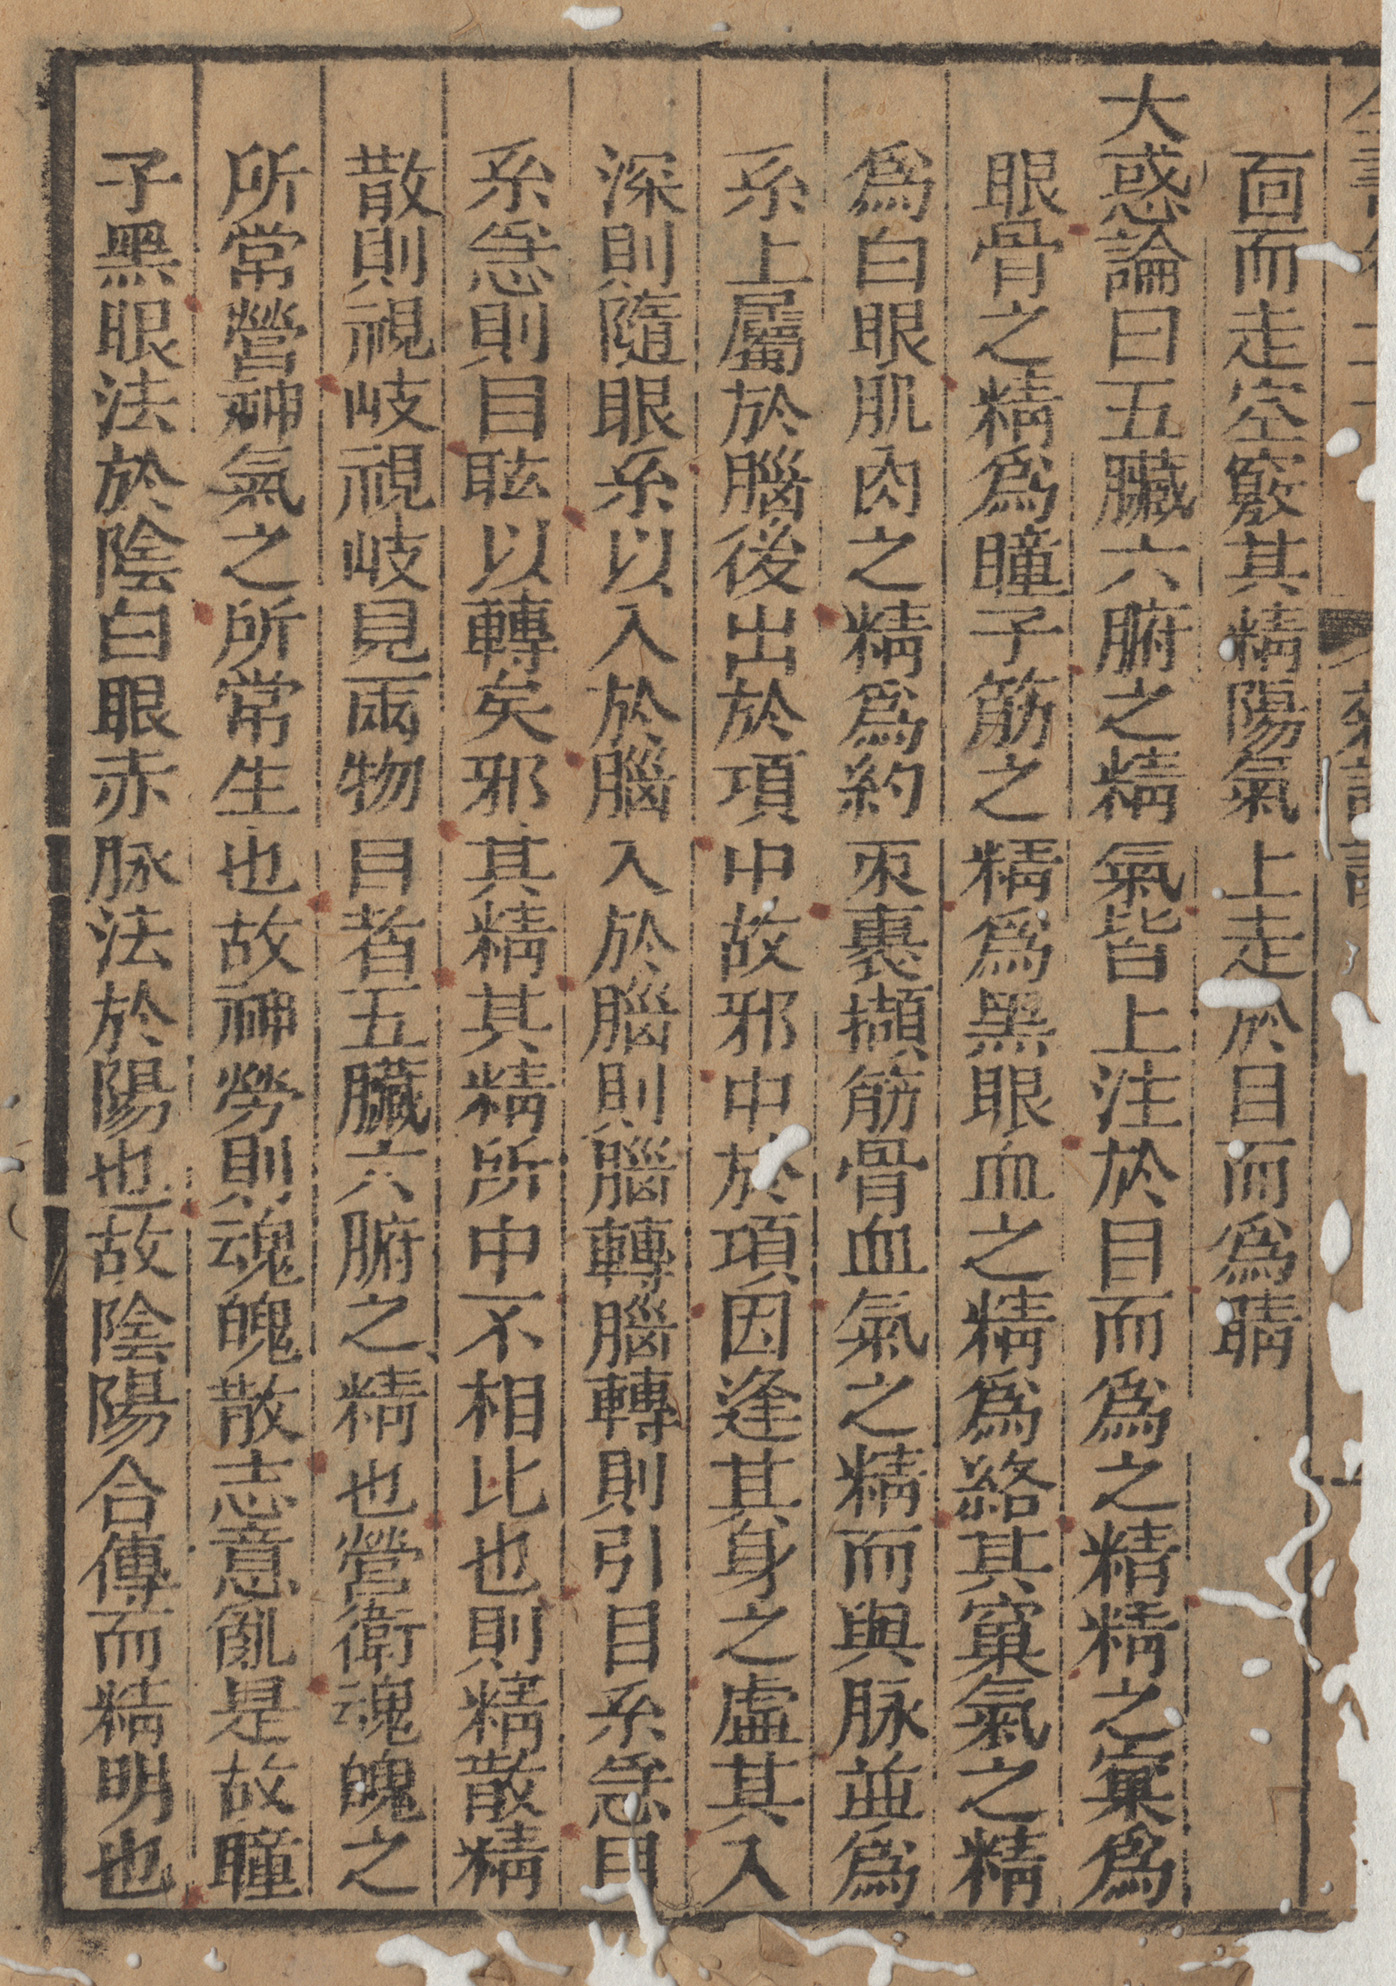 面而走空竅其精陽氣上走於目而爲睛
大惑論曰五臟六腑之精氣皆上注於目而爲之精精之窠爲
眼骨之精爲瞳子筋之精爲黑眼血之精爲絡其窠氣之精
爲白眼肌肉之精爲約束裹擷筋骨血氣之精而與脉並爲
系上屬於腦後出於項中故邪中於項因逢其身之虛其入
深則隨眼系以入於腦入於腦則腦轉腦轉則引目系急目
系急則目眩以轉矣邪其精其精所中不相比也則精散精
散則視岐視岐見兩物目者五臟六腑之精也營衛魂魄之
所常營神氣之所常生也故神勞則魂魄散志意亂是故瞳
子黑眼法於陰白眼赤脉法於陽也故陰陽合傳而精明也